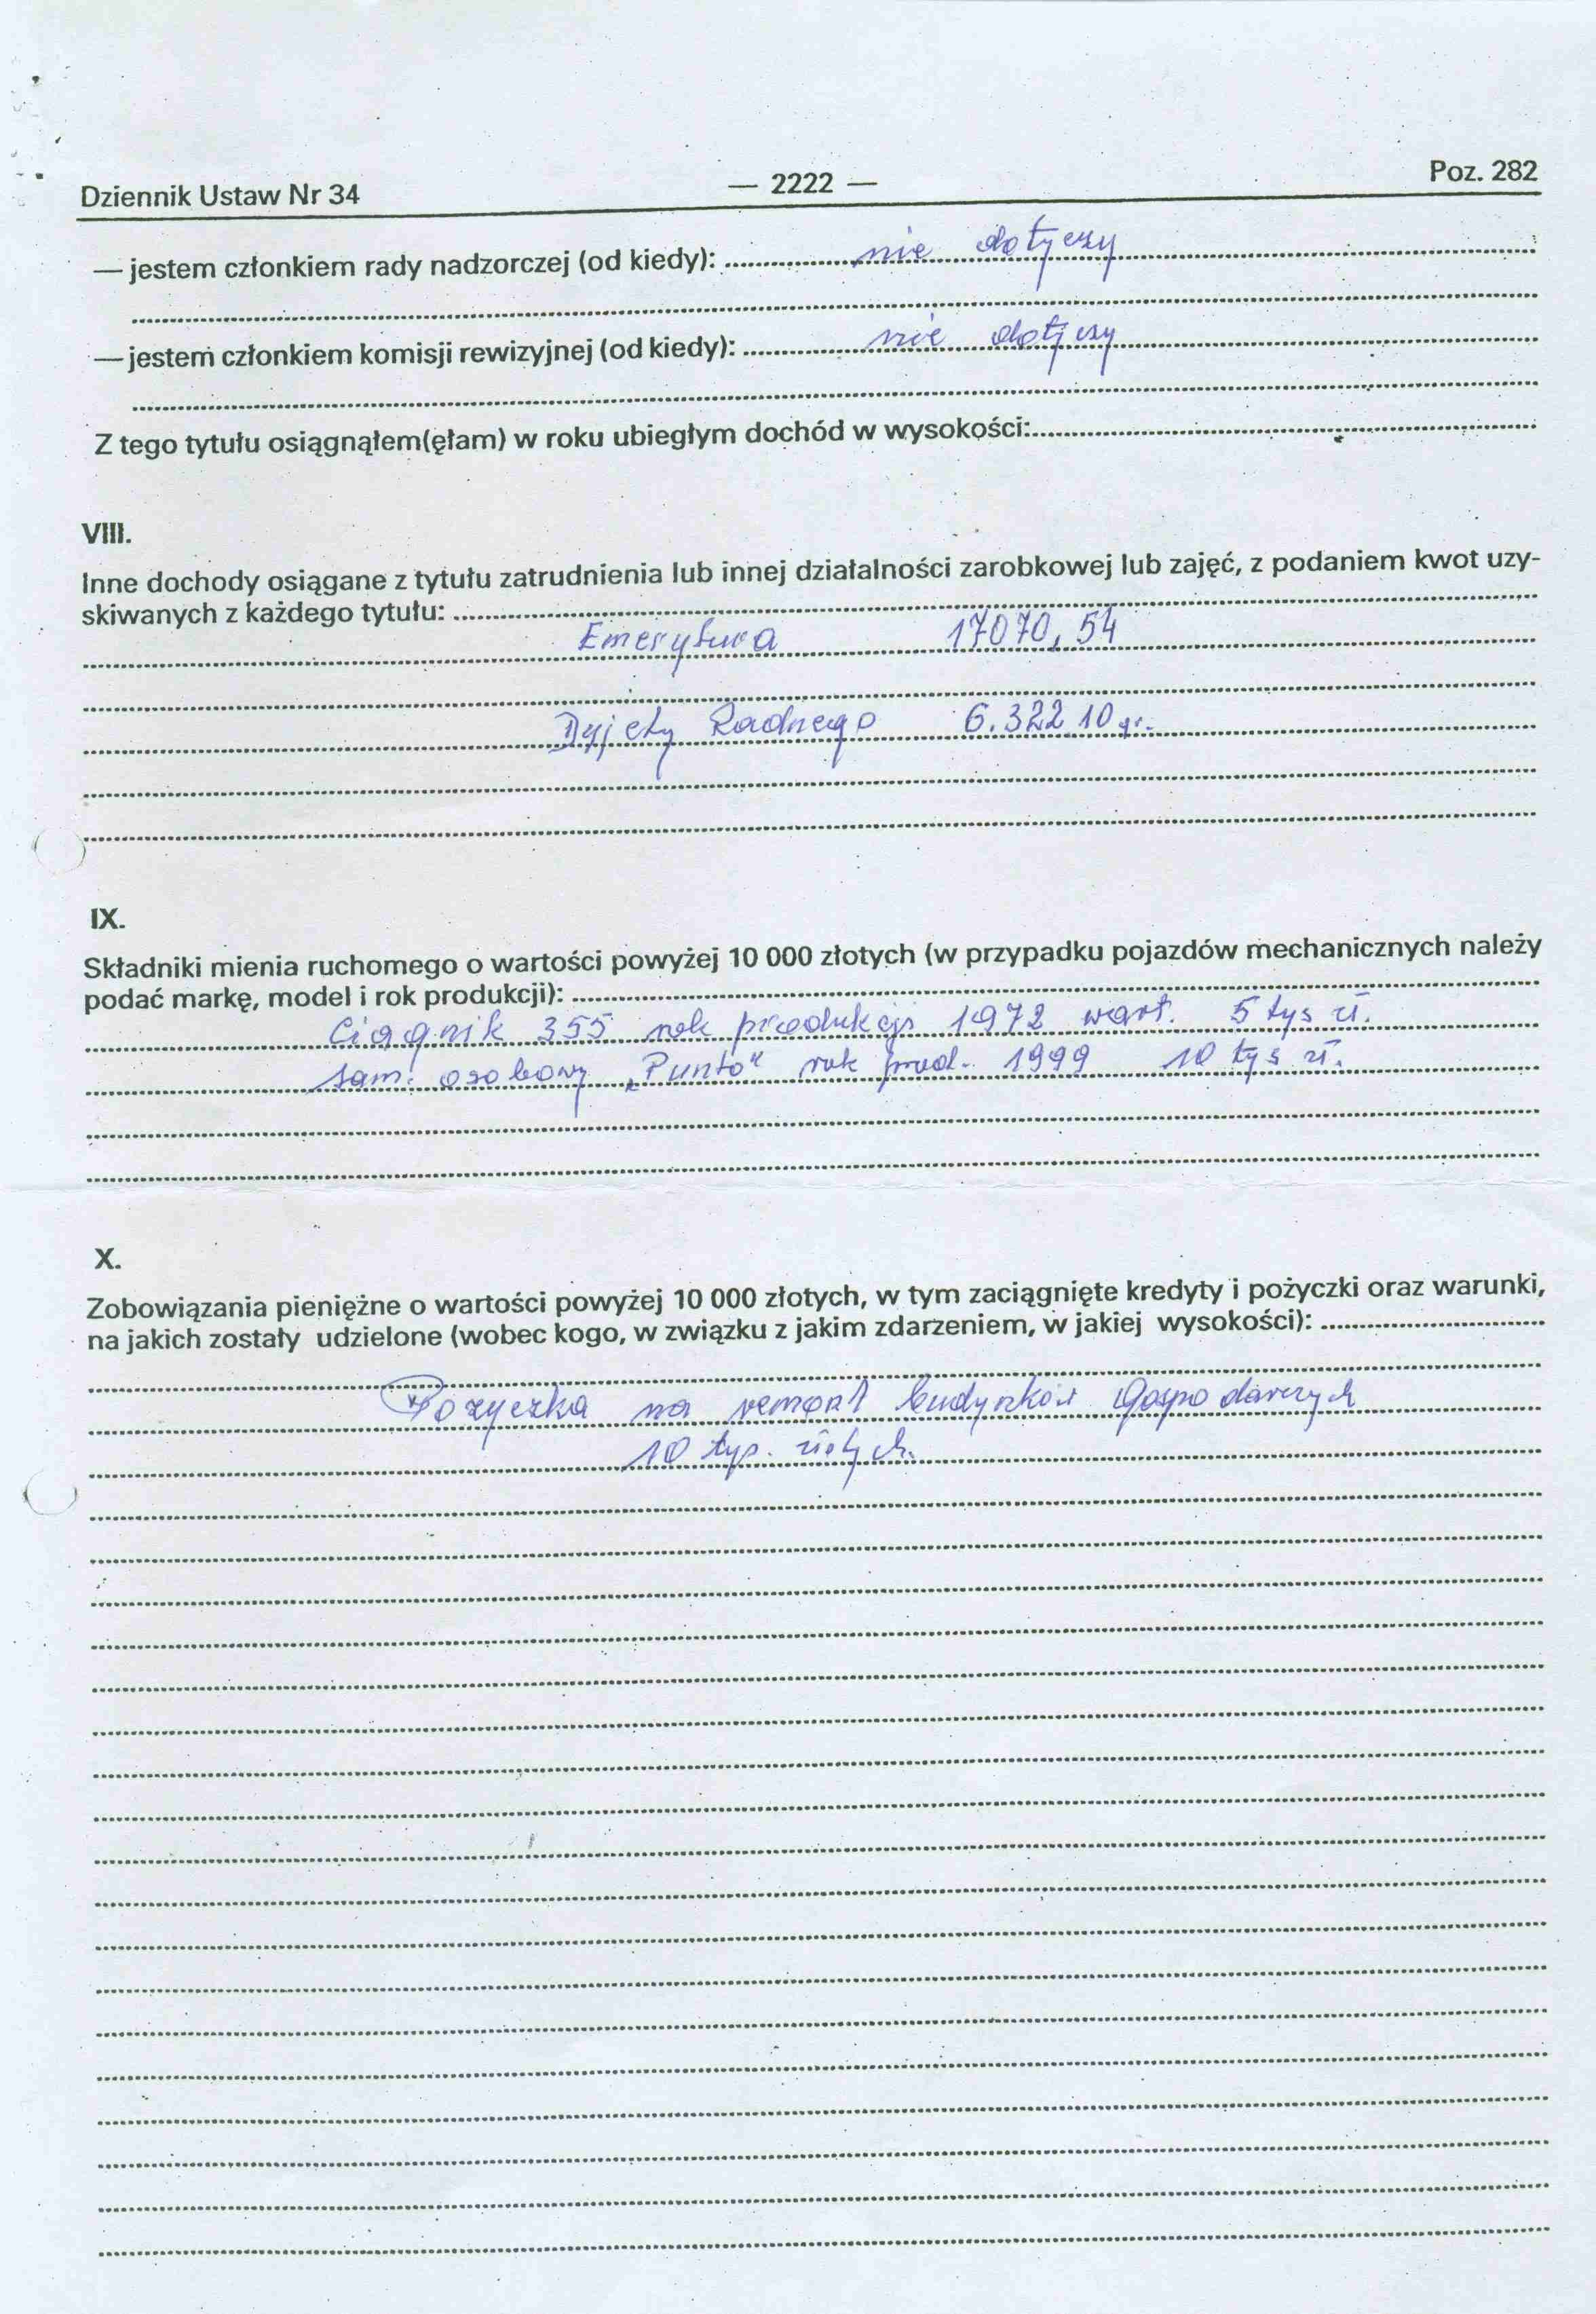 Dziennik Ustaw Nr 34 — 2222 — Poz. 282
— jestem członkiem rady nadzorczej (od kiedy): nie dotyczy
— jestem członkiem komisji rewizyjnej (od kiedy): nie dotyczy
Z tego tytułu osiągnąłem(ęłam) w roku ubiegłym dochód w wysokości:
VIII.
Inne dochody osiągane z tytułu zatrudnienia lub innej działalności zarobkowej lub zajęć, z podaniem kwot uzy-
skiwanych z każdego tytułu:
Emerytura 17070,54
Dyjety Radnego 6.322.10 gr.
IX.
Składniki mienia ruchomego o wartości powyżej 10 000 złotych (w przypadku pojazdów mechanicznych należy
podać markę, model i rok produkcji):
Ciągnik 355 rok produkcji 1972 wart. 5 tys zł.
sam. osobowy „Punto" rok prod. 1999 10 tys zł.
X.
Zobowiązania pieniężne o wartości powyżej 10 000 złotych, w tym zaciągnięte kredyty i pożyczki oraz warunki,
na jakich zostały udzielone (wobec kogo, w związku z jakim zdarzeniem, w jakiej wysokości):
Pożyczka na remont budynków Gospodarczych
10 tys. złotych.